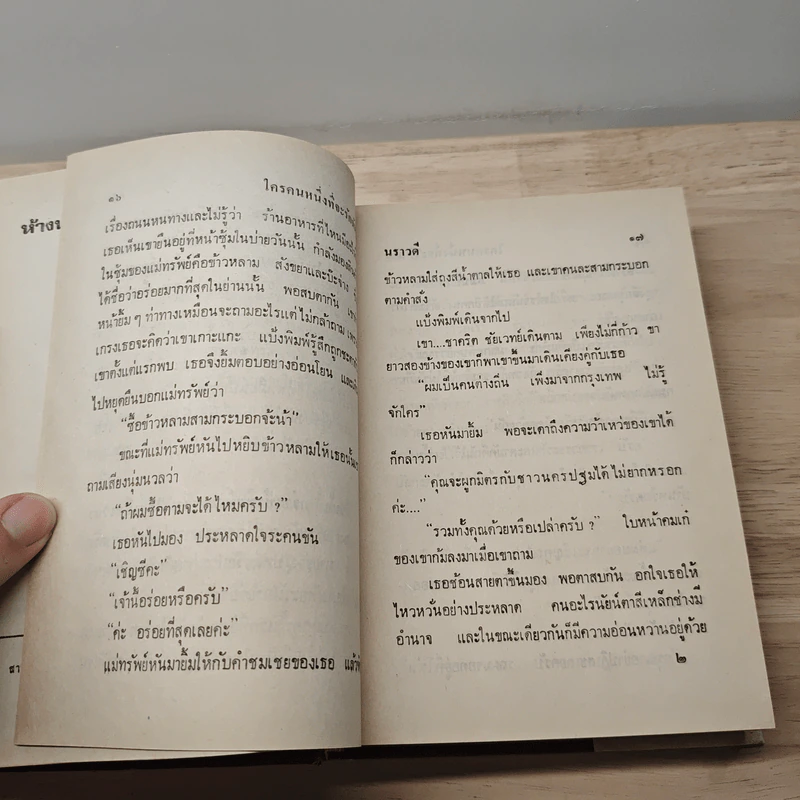 ห้าง
๑๖
ใครคนหนึ่งที่จะ
เรื่องถนนหนทางและไม่รู้ว่า ร้านอาหารที่ไหน
เธอเห็นเขายืนอยู่ที่หน้าซุ้มในบ่ายวันนั้น กำลังมอง
ในซุ้มของแม่ทรัพย์คือข้าวหลาม สังขยาและบ๊ะจ่าง
ได้ชื่อว่าอร่อยมากที่สุดในย่านนั้น พอสบตากัน
หน้ายิ้มๆ ท่าทางเหมือนจะถามอะไรแต่ไม่กล้าถาม
เกรงเธอจะคิดว่าเขาเกาะแกะ แบ้งพิมพ์รู้สึกถูกชะตา
เขาตั้งแต่แรกพบ เธอจึงยิ้มตอบอย่างอ่อนโยน และ
ไปหยุดยืนบอกแม่ทรัพย์ว่า
“ซื้อข้าวหลามสามกระบอกจ้ะน้า”
ขณะที่แม่ทรัพย์หันไปหยิบข้าวหลามให้เธอนั้น
ถามเสียงนุ่มนวลว่า
“ถ้าผมซื้อตามจะได้ไหมครับ ?”
เธอหันไปมอง ประหลาดใจระคนขัน
“เชิญซีคะ”
“เจ้านี้อร่อยหรือครับ”
“ค่ะ อร่อยที่สุดเลยค่ะ”
แม่ทรัพย์หันมายิ้มให้กับคำชมเชยของเธอ แล้ว
นราวดี
๑๗
ข้าวหลามใส่ถุงสีน้ำตาลให้เธอ และเขาคนละสามกระบอก
ตามคำสั่ง
แบ้งพิมพ์เดินจากไป
เขา...ชาคริต ชัยเวทย์เดินตาม เพียงไม่กี่ก้าว ขา
ยาวสองข้างของเขาก็พาเขาขึ้นมาเดินเคียงคู่กับเธอ
“ผมเป็นคนต่างถิ่น เพิ่งมาจากกรุงเทพ ไม่รู้
จักใคร”
เธอหันมายิ้ม พอจะเดาถึงความว้าเหว่ของเขาได้
ก็กล่าวว่า
“คุณจะผูกมิตรกับชาวนครปฐมได้ไม่ยากหรอก
ค่ะ....”
“รวมทั้งคุณด้วยหรือเปล่าครับ ?” ใบหน้าคมเก๋
ของเขาก้มลงมาเมื่อเขาถาม
เธอช้อนสายตาขึ้นมอง พอตาสบกัน อกใจเธอให้
ไหวหวั่นอย่างประหลาด คนอะไรนัยน์ตาสีเหล็กช่างมี
อำนาจ และในขณะเดียวกันก็มีความอ่อนหวานอยู่ด้วย
๒